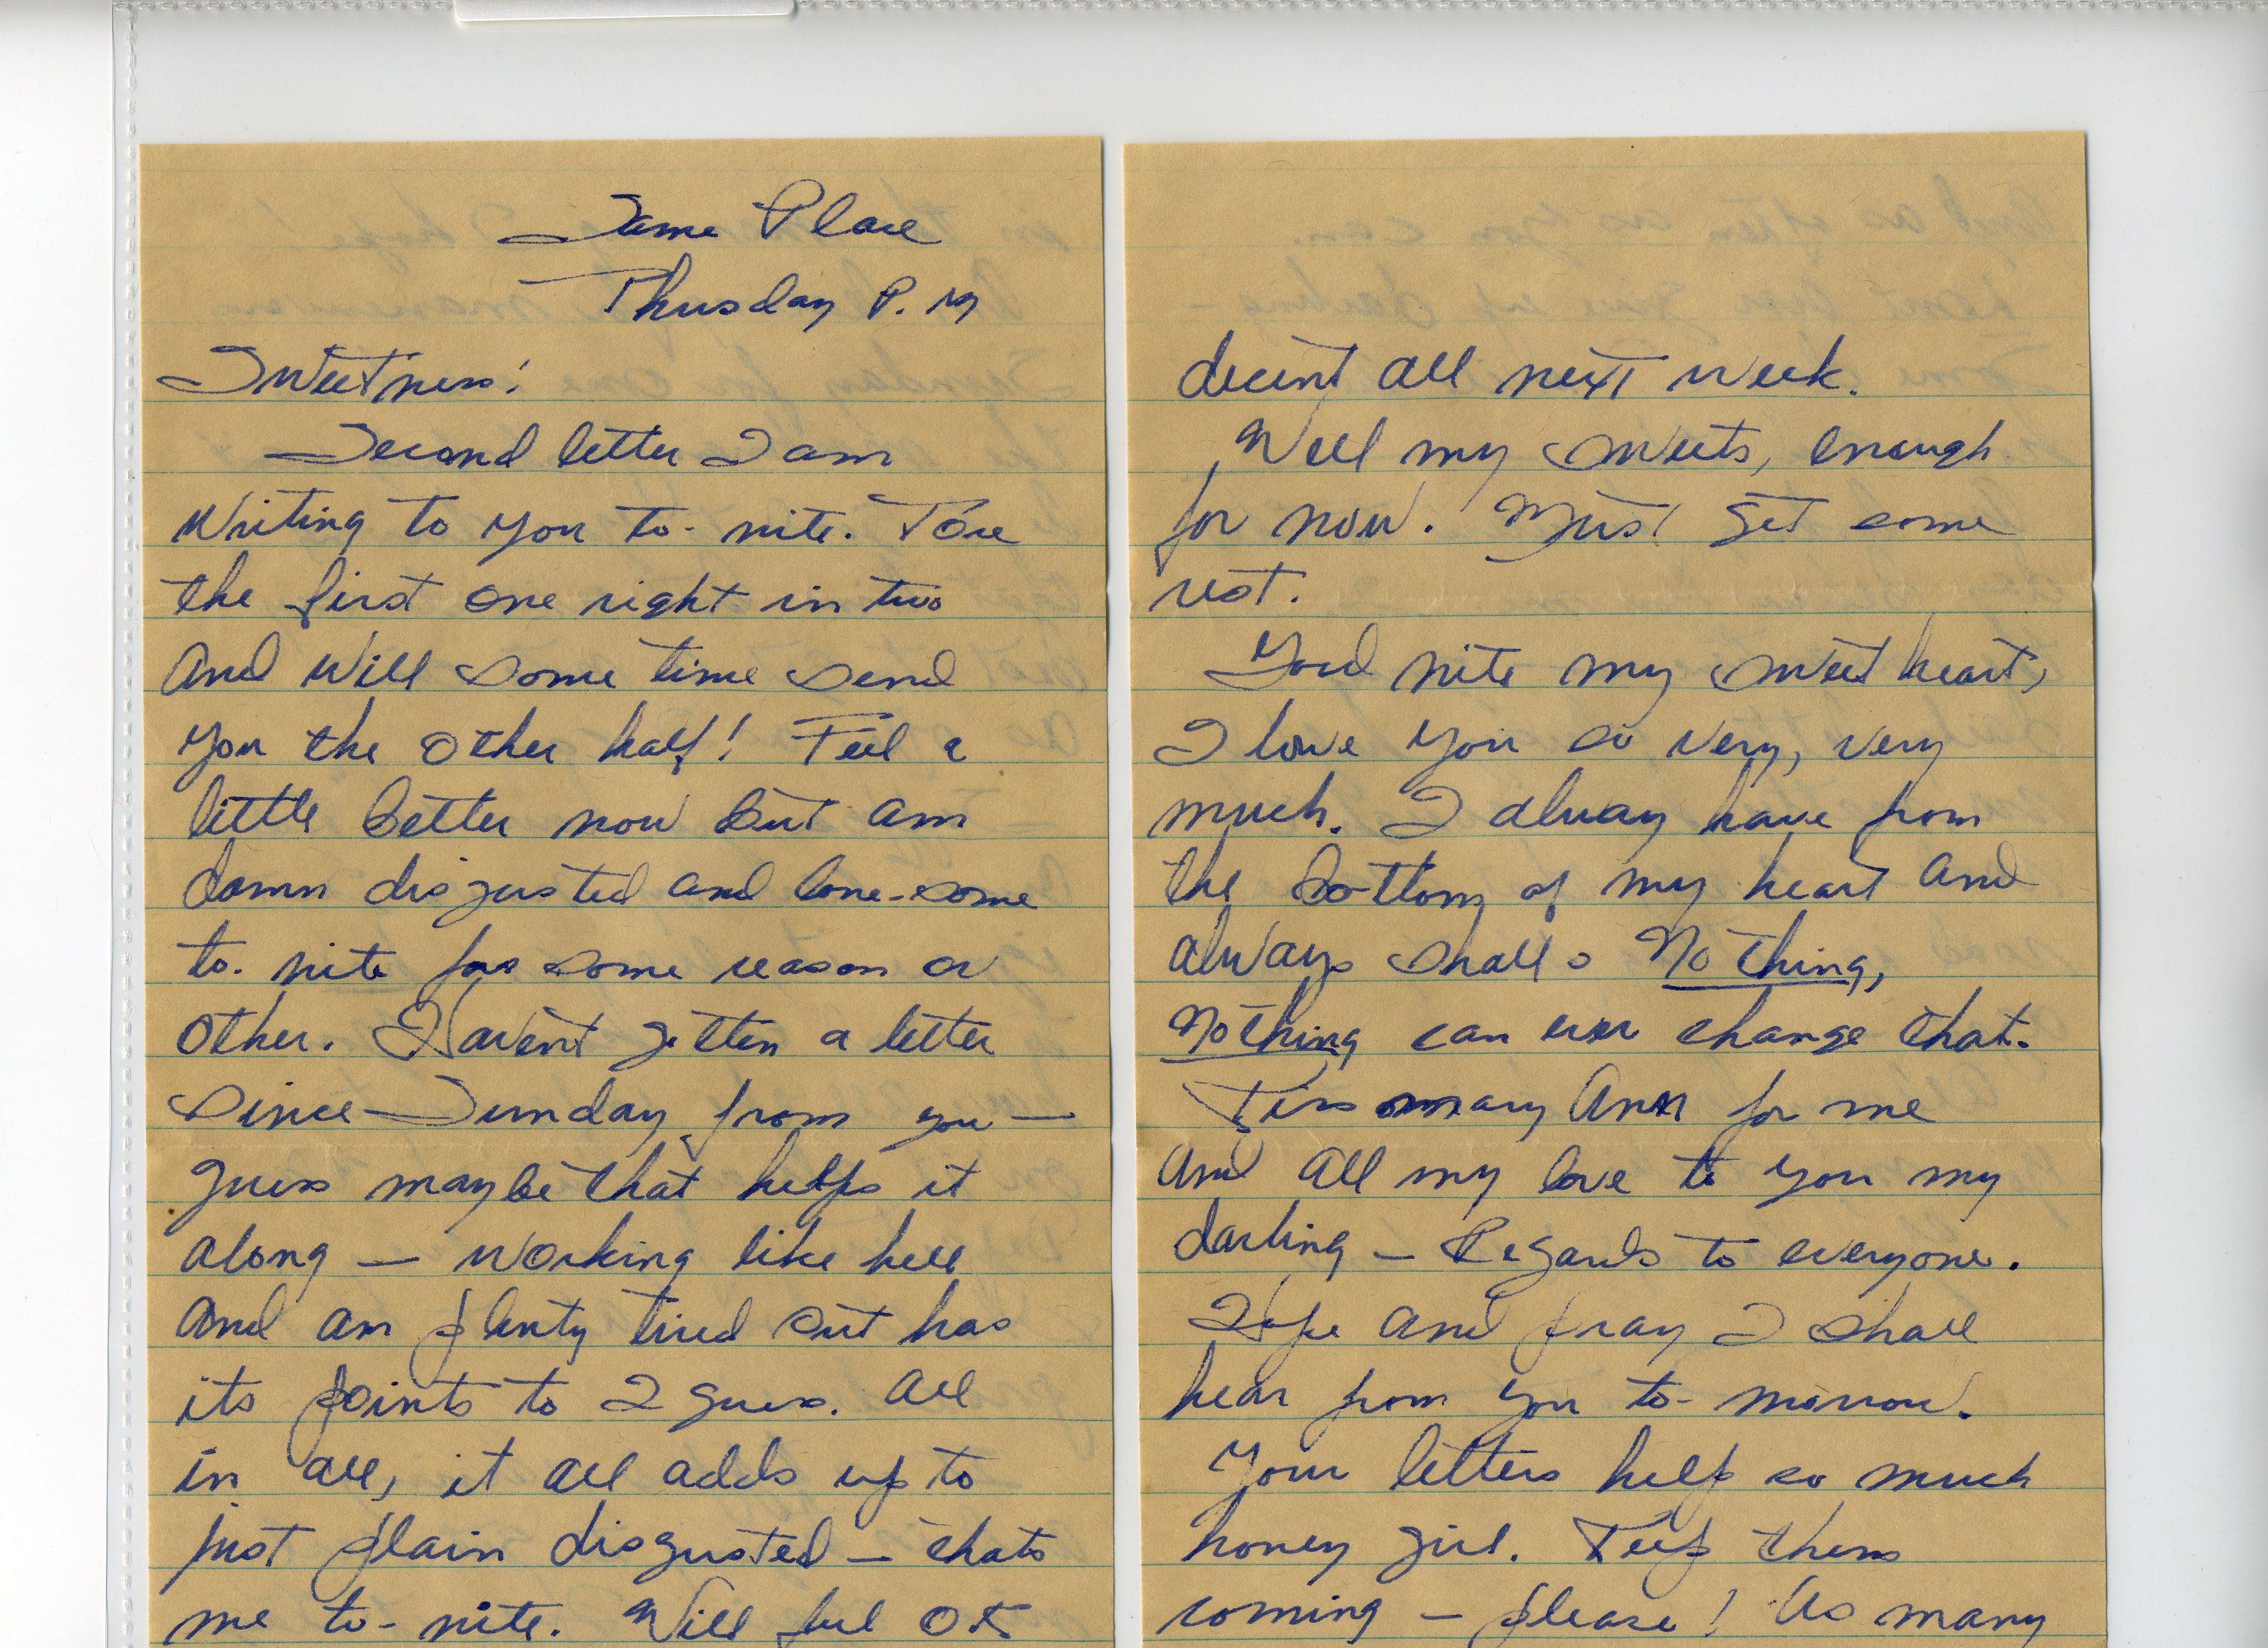 Same Place
Thusday P.M
Sweetness!
Second letter I am
writing to you to-nite. Tore
the first one right in two
and will some time send
you the other half! Feel a
little better now but am
damn disgusted and lone-some
to-nite for some reason or
other. Haven't gotten a letter
since Sunday from you —
guess maybe that helps it
along — working like hell
and am plenty tired but has
its points to I guess. All
in all, it all adds up to
just plain disgusted — thats
me to-nite. Will feel O.K.
decent all next week.
Well my sweets, enough
for now. Must get some
rest.
Good nite my sweet heart,
I love you so very, very
much. I alway have from
the bottom of my heart and
always shall. Nothing,
Nothing can ever change that.
Tiss mary Ann for me
and all my love to you my
darling — Regards to everyone.
Hope and pray I shall
hear from you to-morrow.
Your letters help so much
honey girl. Keep them
coming — please! As many